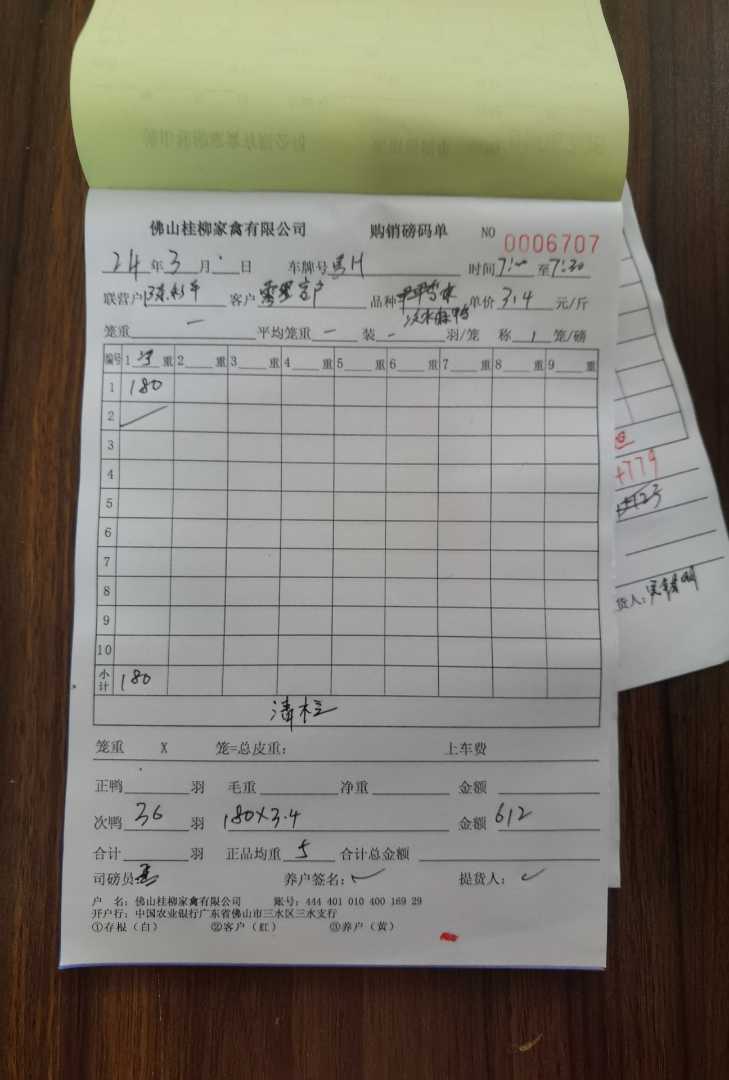 佛山桂柳家禽有限公司 购销磅码单 NO 0006707
24年3月 日 车牌号 时间7:00至7:30
联营户 客户 品种 单价3.4元/斤
笼重一 平均笼重一 装-羽/笼 称1笼/磅
编号 1净重 2 重 3 重 4 重 5 重 6 重 7 重 8 重 9 重
1 180
2
3
4
5
6
7
8
9
10
小计 180
清栏
笼重 X 笼=总皮重: 上车费
正鸭 羽 毛重 净重 金额
次鸭36羽 180×3.4 金额612
合计 羽 正品均重5 合计总金额
司磅员 养户签名: 提货人:
户 名: 佛山桂柳家禽有限公司 账号: 444 401 010 400 169 29
开户行: 中国农业银行广东省佛山市三水区三水支行
①存根(白) ②客户(红) ③养户(黄)
+779
货人: